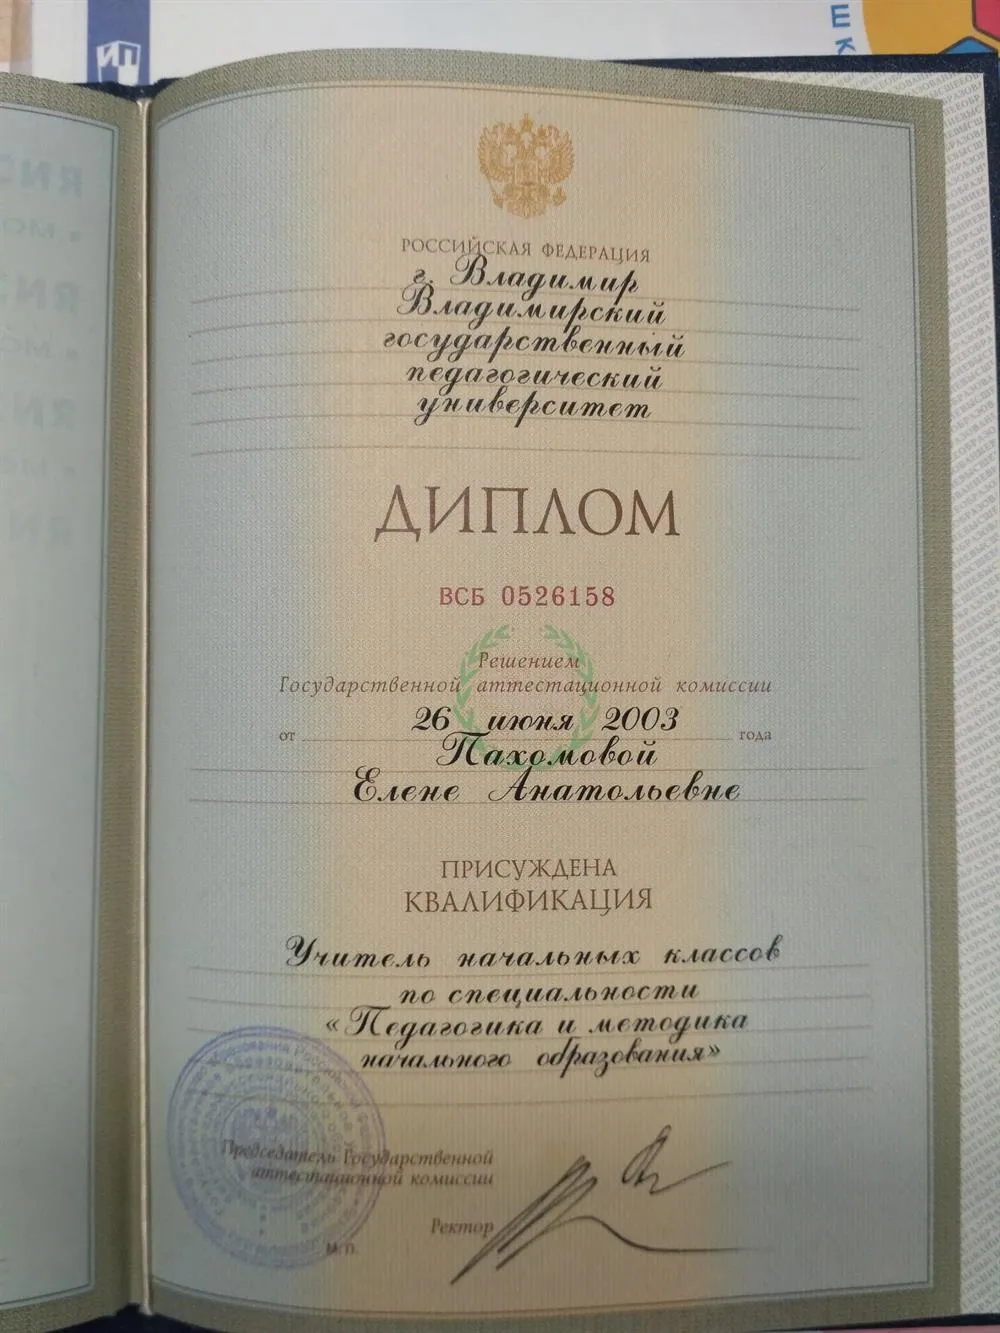 РОССИЙСКАЯ ФЕДЕРАЦИЯ
г. Владимир
Владимирский
государственный
педагогический
университет
ДИПЛОМ
ВСБ 0526158
Решением
Государственной аттестационной комиссии
от 26 июня 2003 года
Пахомовой
Елене Анатольевне
ПРИСУЖДЕНА
КВАЛИФИКАЦИЯ
Учитель начальных классов
по специальности
«Педагогика и методика
начального образования»
Председатель Государственной
аттестационной комиссии
Ректор
М.П.